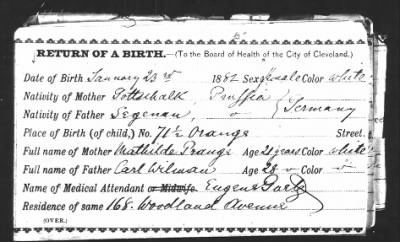 RETURN OF A BIRTH.—(To the Board of Health of the City of Cleveland.)
Date of Birth January 23rd 1882 Sex female Color white
Nativity of Mother Gottschalk Prussia } Germany
Nativity of Father Segenau " }
Place of Birth (of child,) No. 71½ Orange Street.
Full name of Mother Mathilde Prange Age 21 years Color white
Full name of Father Carl Wilman Age 28 " Color "
Name of Medical Attendant or Midwife. Eugene
Residence of same 168. Woodland Avenue
(OVER.)